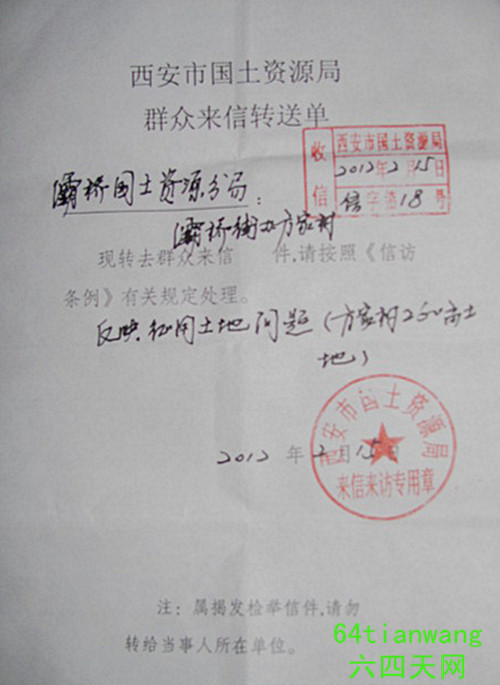 西安市国土资源局
群众来信转送单
收信
西安市国土资源局
2012年2月15日
信字第18号
灞桥国土资源分局:
灞桥街办方家村
现转去群众来信 件,请按照《信访
条例》有关规定处理。
反映征用土地问题(方家村200亩土
地)
2012年2月15日
西安市国土资源局
来信来访专用章
注:属揭发检举信件,请勿
转给当事人所在单位。
64tianwang
六四天网